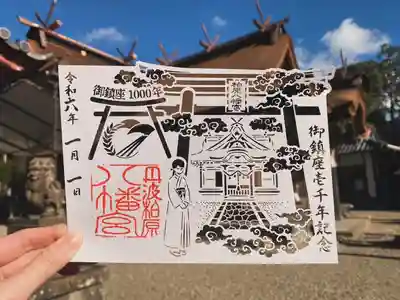 御鎮座1000年
令和六年 一月一日
丹波柏原
八幡宮
御鎮座壱千年記念